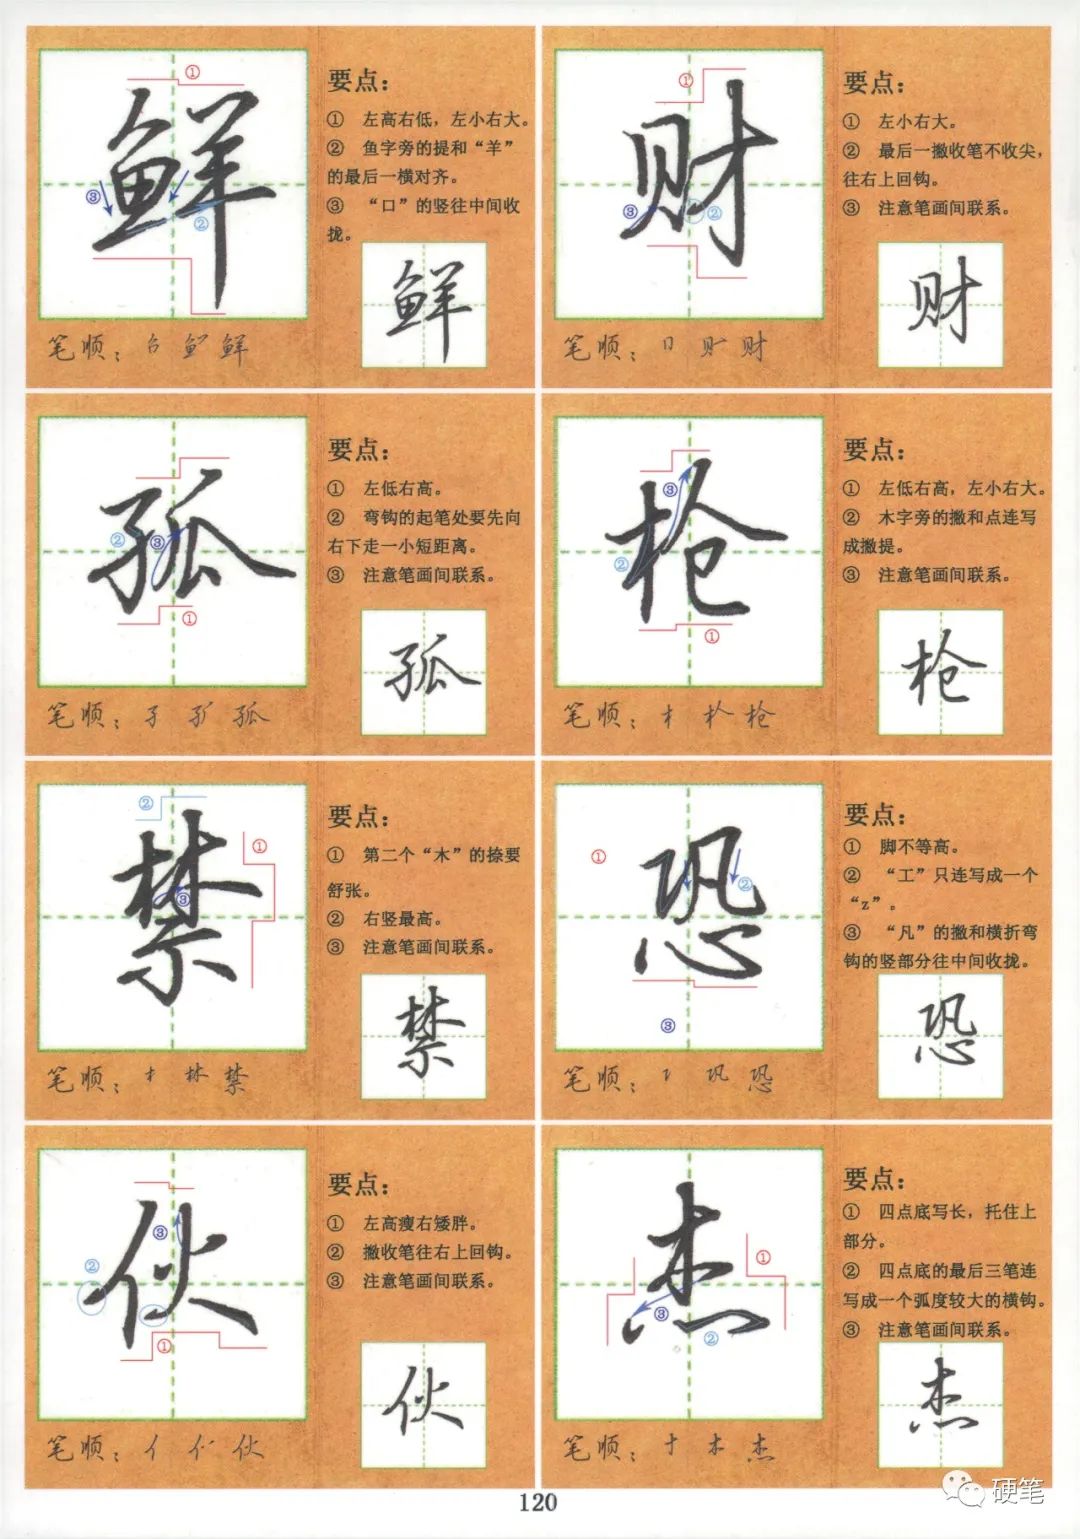 鲜
①
③
②
要点：
① 左高右低，左小右大。
② 鱼字旁的提和“羊”
的最后一横对齐。
③ “口”的竖往中间收
拢。
鲜
笔顺：鲜
财
①
③
②
要点：
① 左小右大。
② 最后一撇收笔不收尖，
往右上回钩。
③ 注意笔画间联系。
财
笔顺：财
孤
②
③
①
要点：
① 左低右高。
② 弯钩的起笔处要先向
右下走一小短距离。
③ 注意笔画间联系。
孤
笔顺：孤
枪
③
②
①
要点：
① 左低右高，左小右大。
② 木字旁的撇和点连写
成撇提。
③ 注意笔画间联系。
枪
笔顺：枪
禁
②
①
③
要点：
① 第二个“木”的捺要
舒张。
② 右竖最高。
③ 注意笔画间联系。
禁
笔顺：林 禁
恐
①
②
③
要点：
① 脚不等高。
② “工”只连写成一个
“z”。
③ “凡”的撇和横折弯
钩的竖部分往中间收拢。
恐
笔顺：巩 恐
伙
③
②
①
要点：
① 左高瘦右矮胖。
② 撇收笔往右上回钩。
③ 注意笔画间联系。
伙
笔顺：亻 伙
杰
①
③
②
要点：
① 四点底写长，托住上
部分。
② 四点底的最后三笔连
写成一个弧度较大的横钩。
③ 注意笔画间联系。
杰
笔顺：十 木 杰
120
硬笔